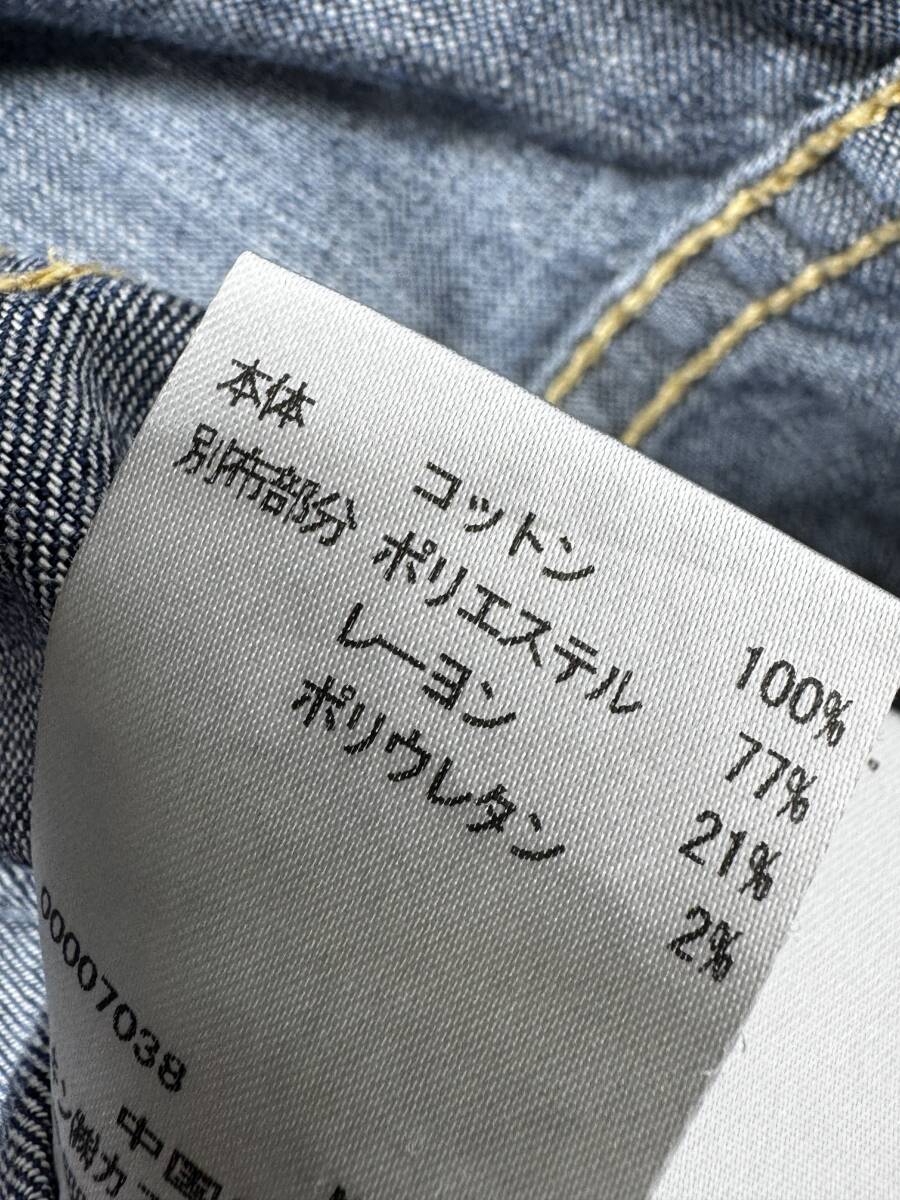 本体 コットン 100%
別布部分 ポリエステル 77%
レーヨン 21%
ポリウレタン 2%
00007038
中国
ン㈱カ